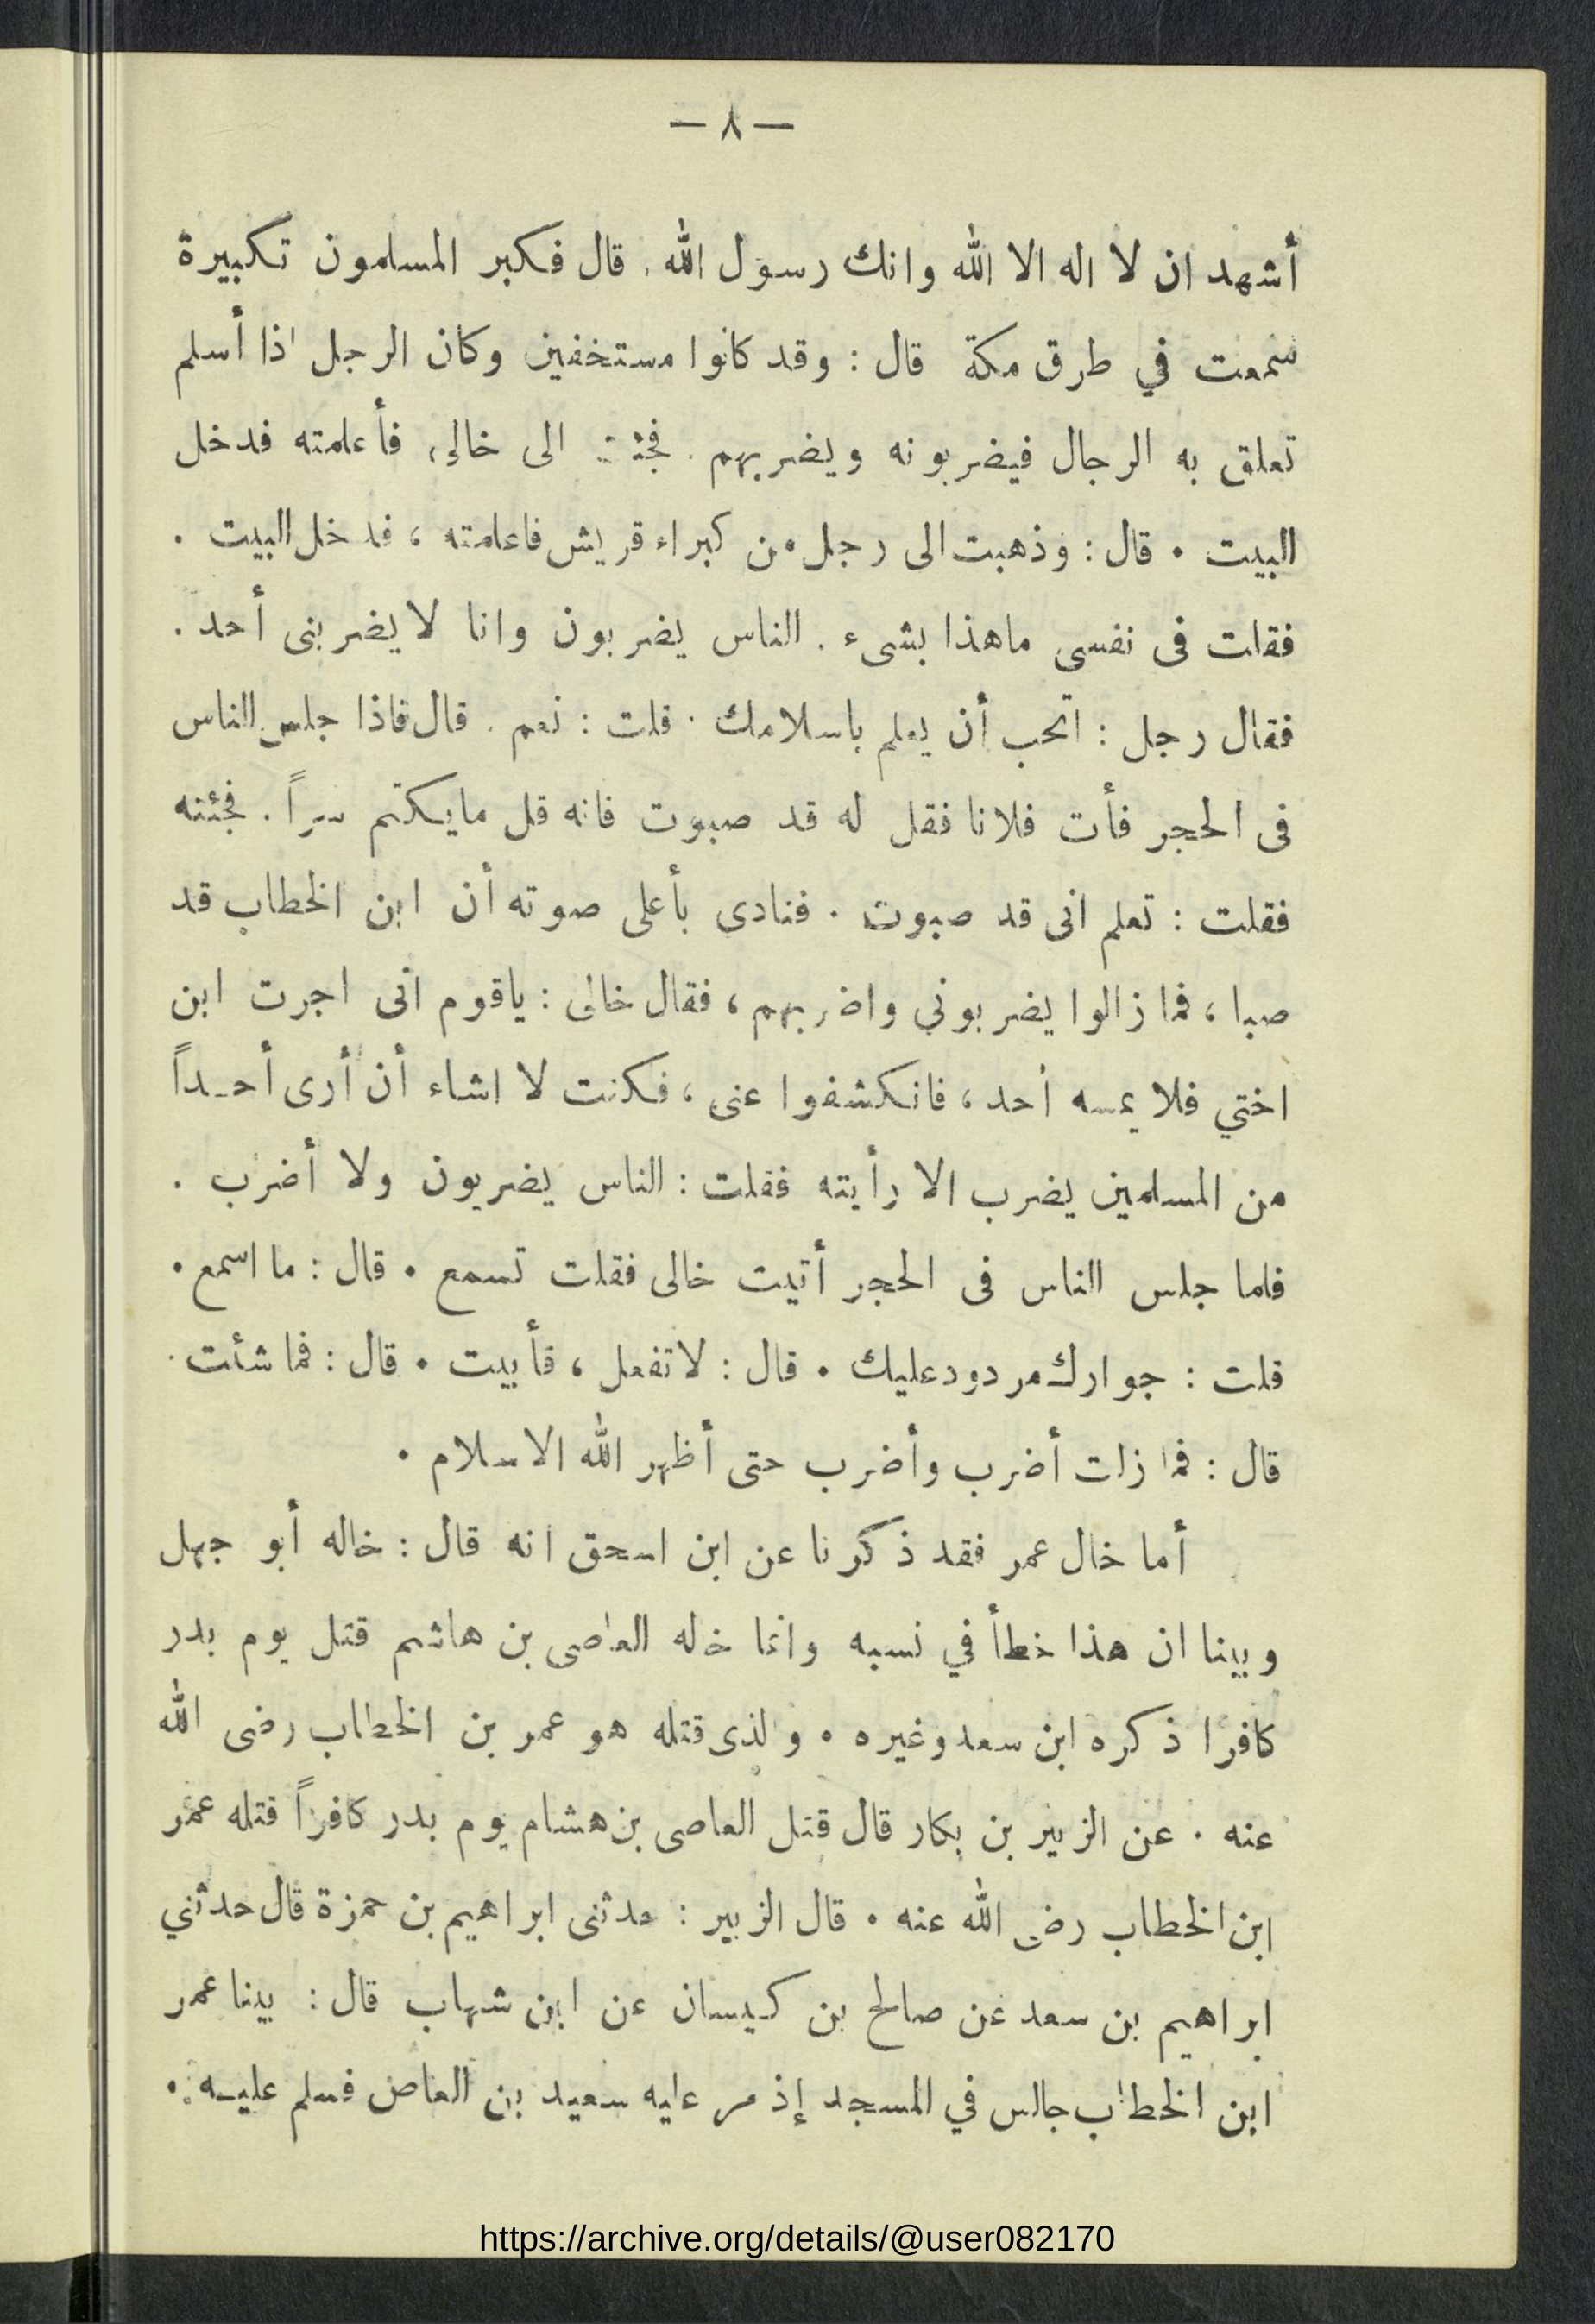 — ٨ —
أشهد ان لا اله الا الله وانك رسول الله . قال فكبر المسلمون تكبيرة
سمعت في طرق مكة قال : وقد كانوا مستخفين وكان الرجل اذا أسلم
تعلق به الرجال فيضربونه ويضربهم . فجئت الى خالى ، فأعلمته فدخل
البيت . قال : وذهبت الى رجل من كبراء قريش فاعلمته ، فدخل البيت .
فقلت فى نفسى ماهذا بشىء . الناس يضربون وانا لا يضربنى أحد .
فقال رجل : اتحب أن يعلم باسلامك . قلت : نعم . قال فاذا جلس الناس
فى الحجر فأت فلانا فقل له قد صبوت فانه قل مايكتم سراً . فجئته
فقلت : تعلم انى قد صبوت . فنادى بأعلى صوته أن ابن الخطاب قد
صبا ، فما زالوا يضربوني واضربهم ، فقال خالى : ياقوم انى اجرت ابن
اختي فلا يمسه أحد ، فانكشفوا عنى ، فكنت لا اشاء أن أرى أحداً
من المسلمين يضرب الا رأيته فقلت : الناس يضربون ولا أضرب .
فلما جلس الناس فى الحجر أتيت خالى فقلت تسمع . قال : ما اسمع .
قلت : جوارك مردود عليك . قال : لا تفعل ، فأبيت . قال : فما شئت .
قال : فما زلت أضرب وأضرب حتى أظهر الله الاسلام .
أما خال عمر فقد ذكرنا عن ابن اسحق انه قال : خاله أبو جهل
وبينا ان هذا خطأ في نسبه وانما خاله العاصى بن هاشم قتل يوم بدر
كافرا ذكره ابن سعد وغيره . والذى قتله هو عمر بن الخطاب رضى الله
عنه . عن الزبير بن بكار قال قتل العاصى بن هشام يوم بدر كافراً قتله عمر
ابن الخطاب رضى الله عنه . قال الزبير : حدثنى ابراهيم بن حمزة قال حدثني
ابراهيم بن سعد عن صالح بن كيسان عن ابن شهاب قال : بينا عمر
ابن الخطاب جالس في المسجد إذ مر عليه سعيد بن العاص فسلم عليه .
https://archive.org/details/@user082170